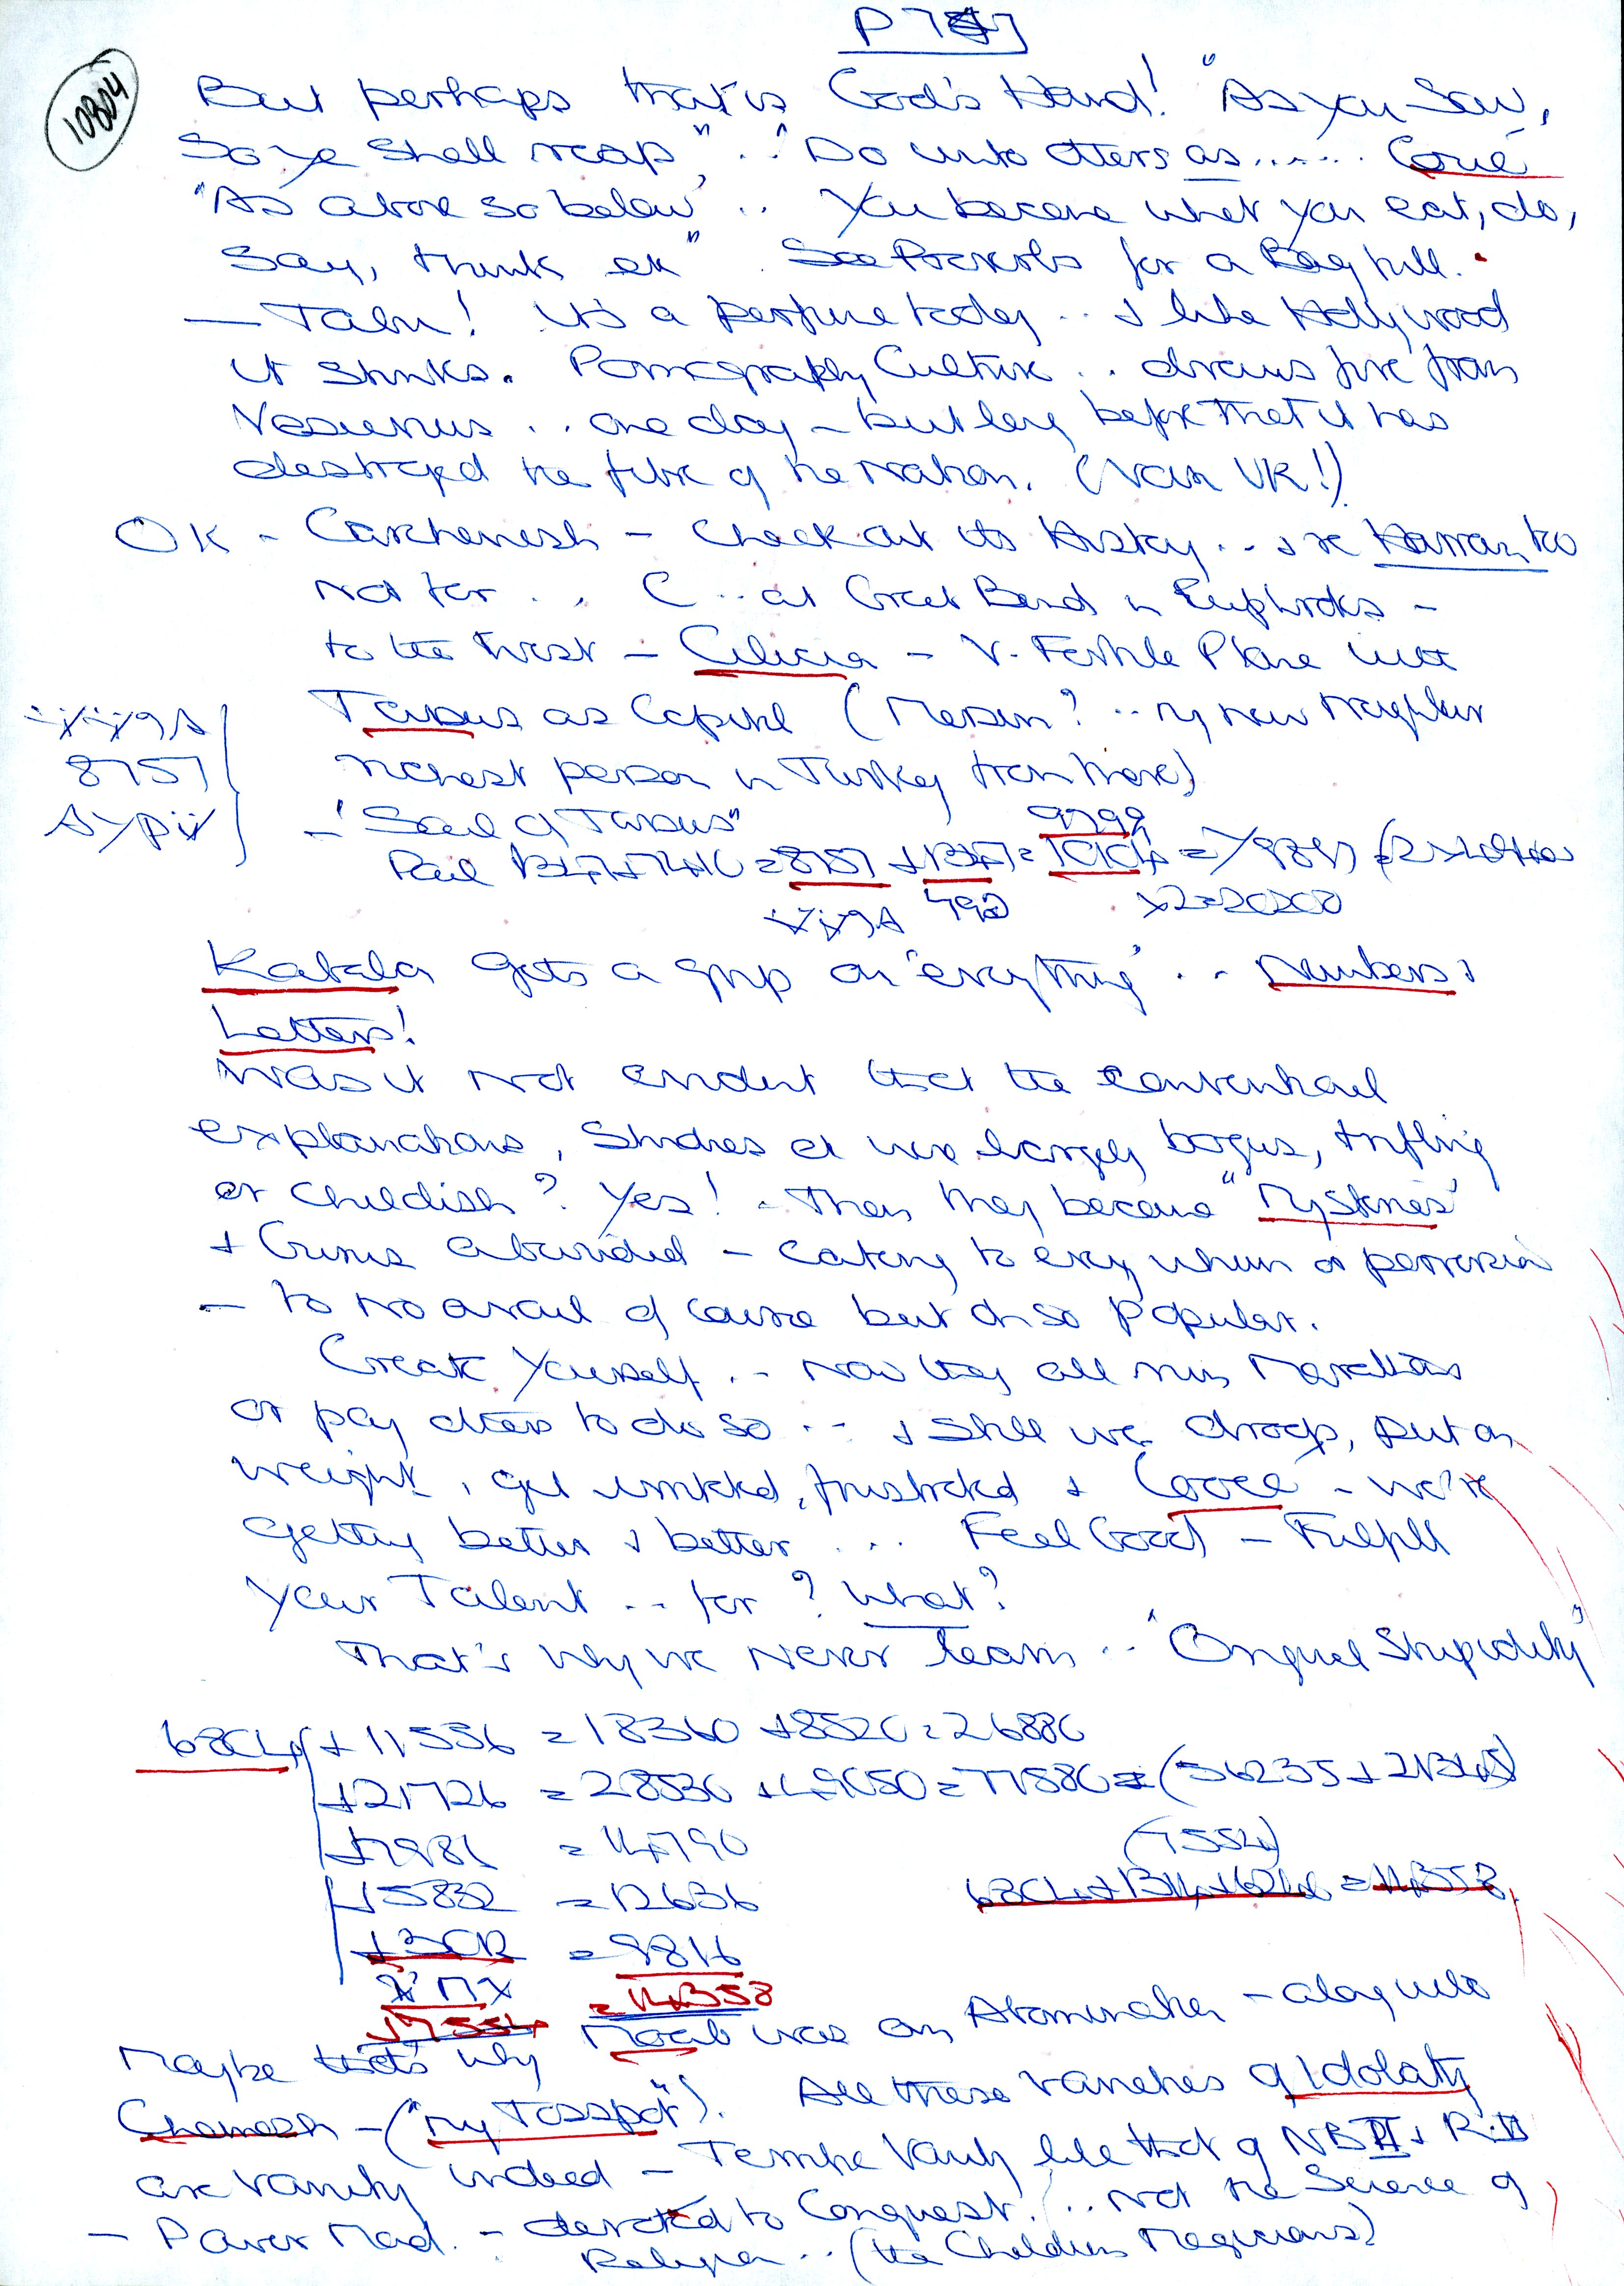 10804
But perhaps that is God's Hand! "As you Sow,
So ye shall reap" .. "Do unto others as ...... Coué
"As above so below" .. You become what you eat, do,
Say, think etc" . See Proverbs for a Bag full.
— Tabu! It's a perfume today .. & like Hollywood
it stinks. Pornography Culture .. draws fire from
Vesuvius .. one day – but long before that it has
destroyed the fibre of the Nation. (Vain UK!)
OK - Carchemish – Check out its History .. & re Harran too
not far .. C .. at Great Bend in Euphrates –
to the West – Cilicia – V. Fertile Plane with
Tarsus as Capital (Mersin? .. my new neighbour
richest person in Turkey from there)
8757
– "Saul of Tarsus"
9799
Paul 1347+7410 = 8757 + 1347 = 10104
x2=20208
Kabala gets a grip on 'everything' .. Numbers &
Letters!
Was it not evident that the conventional
explanations, Studies et were largely bogus, trifling
or childish? Yes! - Then they became "Mysteries"
& Gurus abounded – catering to every whim or perversion
– to no avail of course but oh so popular.
Create Yourself .. Now they all run Marathons
or pay others to do so .. & still we droop, put on
weight, get wrinkled, frustrated & Coué – we're
getting better & better ... Feel Good – Fulfill
Your Talent .. for? What?
That's why we Never learn .. "Original Stupidity"
6804 + 11556 = 18360 + 8520 = 26880
+21726 = 28530 + 49050 = 77580 = (56235 + 21345)
+7986 = 14790
(7554)
+5832 = 12636
6804 + 1314 + 6246 = 14358
+3012 = 9816
+7554 = 14358
Maybe that's why Moab was an Abomination – along with
Chemosh – ("My Tosspot"). All these varieties of Idolatry
are Vanity indeed – Temple Vanity like that of NB II & R.II
– Power Mad. – devoted to Conquest. .. not the Science of
Religion .. (the Chaldean Magicians)